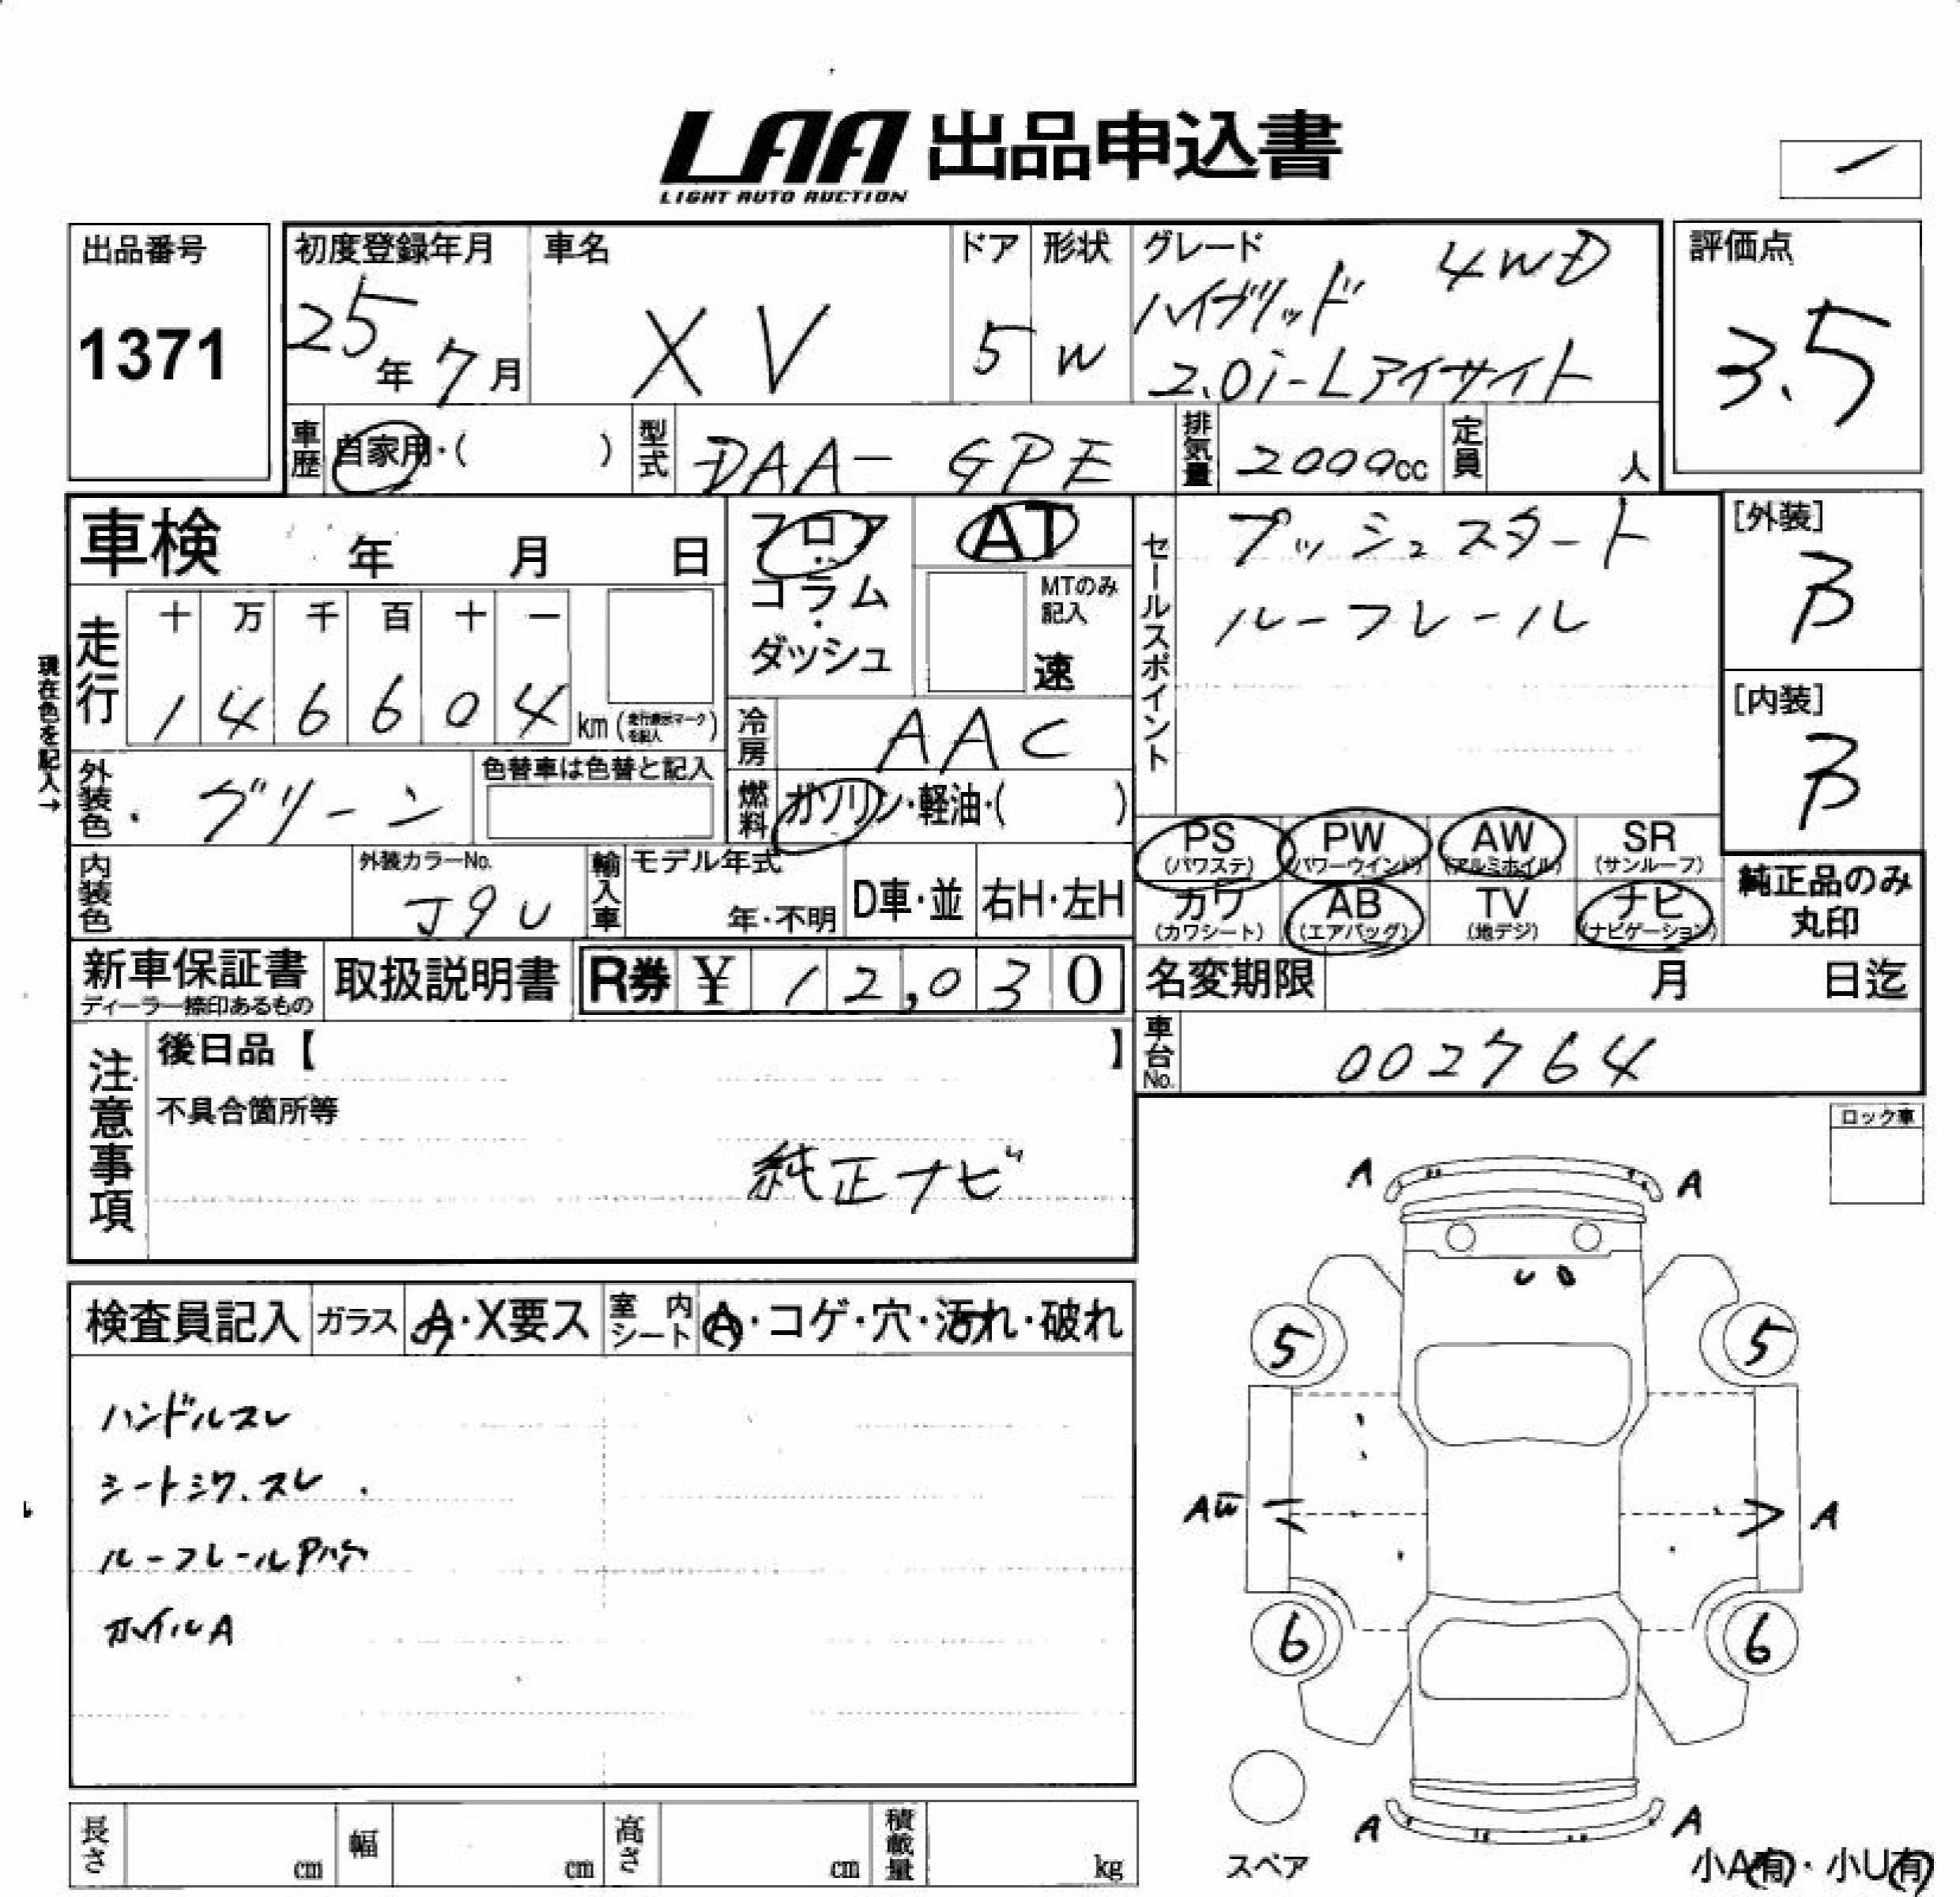 LAA 出品申込書
LIGHT AUTO AUCTION
出品番号
1371
初度登録年月
25年7月
車名
XV
ドア
5
形状
W
グレード
4WD
ハイブリッド
2.0i-Lアイサイト
評価点
3.5
車歴
自家用・( )
型式
DAA-GPE
排気量
2000cc
定員
人
車検 年 月 日
フロア
・
コラム
・
ダッシュ
AT
MTのみ
記入
速
セールスポイント
プッシュスタート
ルーフレール
[外装]
B
[内装]
B
現在色を記入→
走行
十 万 千 百 十 一
1 4 6 6 0 4 km (走行表示マークを記入)
冷房
AAC
外装色
グリーン
色替車は色替と記入
燃料
ガソリン・軽油・( )
PS
(パワステ)
PW
(パワーウインド)
AW
(アルミホイル)
SR
(サンルーフ)
カワ
(カワシート)
AB
(エアバッグ)
TV
(地デジ)
ナビ
(ナビゲーション)
純正品のみ
丸印
内装色
外装カラーNo.
J9U
輸入車
モデル年式
年・不明
D車・並
右H・左H
新車保証書
ディーラー捺印あるもの
取扱説明書
R券 ¥ 12,030
名変期限 月 日迄
車台No.
002764
注意事項
後日品【 】
不具合箇所等
純正ナビ
ロック車
検査員記入
ガラス
A・X要ス
室内シート
A・コゲ・穴・汚れ・破れ
ハンドルスレ
シートシワ、スレ
ルーフレールP穴
ホイルA
A A
5 5
AU A
6 6
A A
スペア
小A有・小U有
長さ cm
幅 cm
高さ cm
積載量 kg